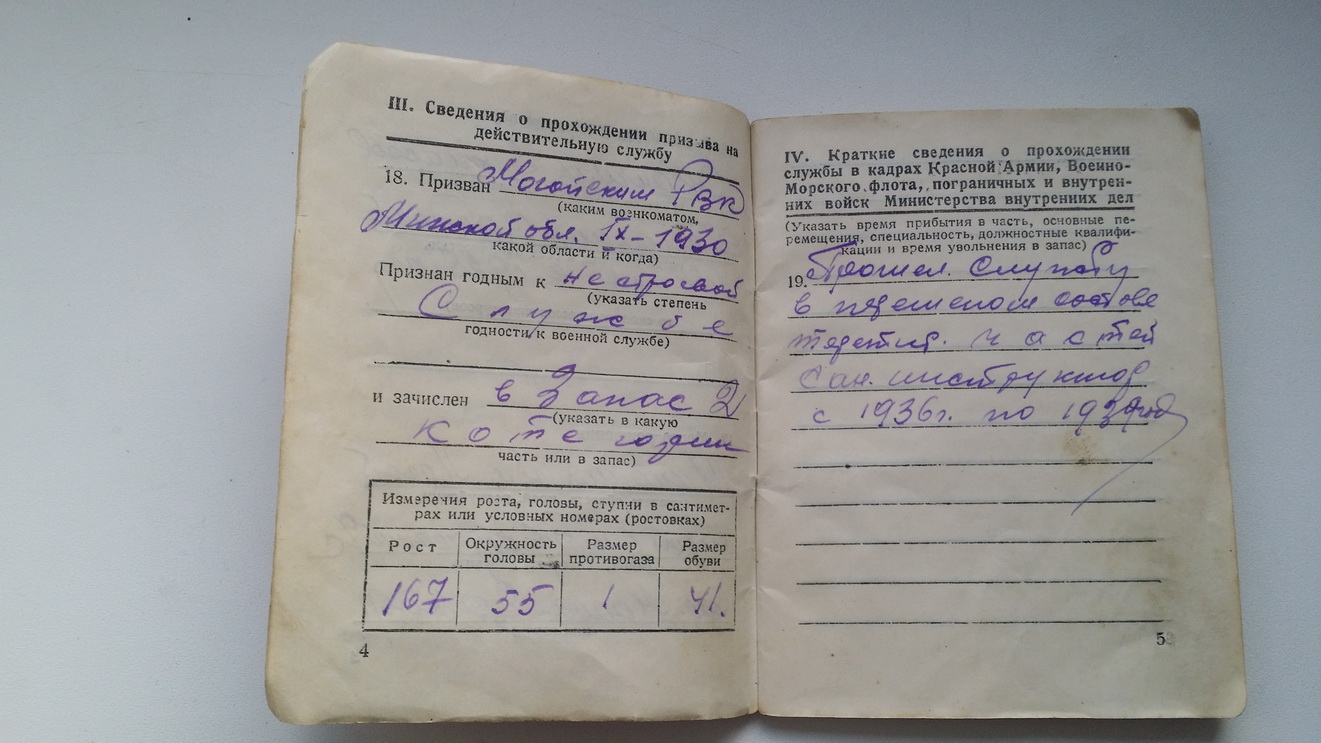 III. Сведения о прохождении призыва на
действительную службу
18. Призван Могойским РВК
(каким военкоматом,
Минской обл. IX – 1930
какой области и когда)
Признан годным к не строевой
(указать степень
Службе
годности к военной службе)
и зачислен в Запас 2
(указать в какую
категории
часть или в запас)
Измерения роста, головы, ступни в сантимет-
рах или условных номерах (ростовках)
Рост Окружность Размер Размер
головы противогаза обуви
167 55 1 41.
4
IV. Краткие сведения о прохождении
службы в кадрах Красной Армии, Военно-
Морского флота, пограничных и внутрен-
них войск Министерства внутренних дел
(Указать время прибытия в часть, основные пе-
ремещения, специальность, должностные квалифи-
кации и время увольнения в запас)
19. Прошел службу
в составе
частей
сан. инструктор
с 1936г. по
5